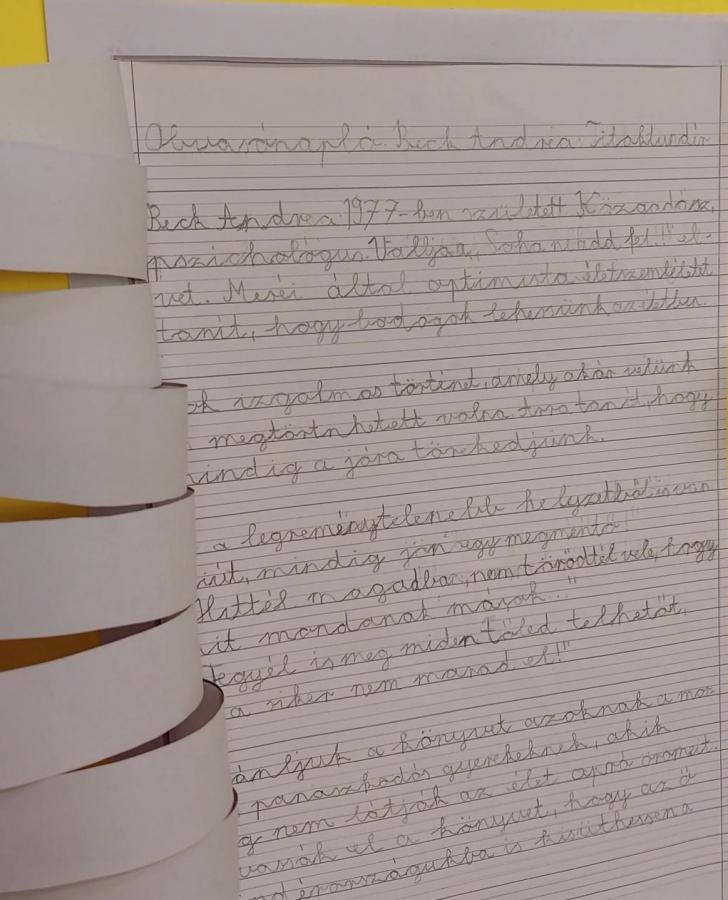 Olvasónapló Beck Andrea: Titoktündér
Beck Andrea 1977-ben született. Közgadász,
pszichológus. Vallja a, Soha ne add fel!" el-
vet. Meséi által optimista életszemléletet
tanít, hogy bodogok lehessünk az életben.
ok izgalmas történet, amely akár velünk
megtörtnhetett volna. Arra tanít, hogy
indig a jóra törekedjünk.
a legreménytelenebb helyzetből is van
iút, mindig jön egy megmentő!"
Hittél magadban, nem törődtél vele, hogy
it mondanak mások..."
tegyél is meg miden tőled telhetőt,
a siker nem marad el!"
ánljuk a könyvet azoknak a mor
panaszkodós gyerekeknek, akik
g nem látják az élet apró örömeit.
vassák el a könyvet, hogy az ő
nd érországukba is kisüthessen a